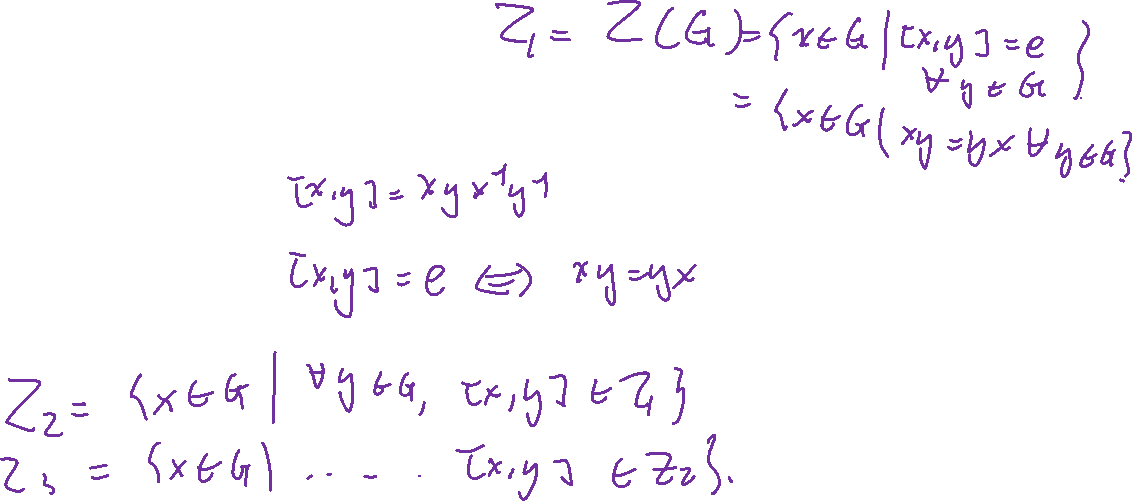 Z₁ = Z(G) = {x ∈ G | [x,y] = e ∀ y ∈ G}
= {x ∈ G | xy = yx ∀ y ∈ G}
[x,y] = xyx⁻¹y⁻¹
[x,y] = e ⟺ xy = yx
Z₂ = {x ∈ G | ∀ y ∈ G, [x,y] ∈ Z₁}
Z₃ = {x ∈ G | .... [x,y] ∈ Z₂}.